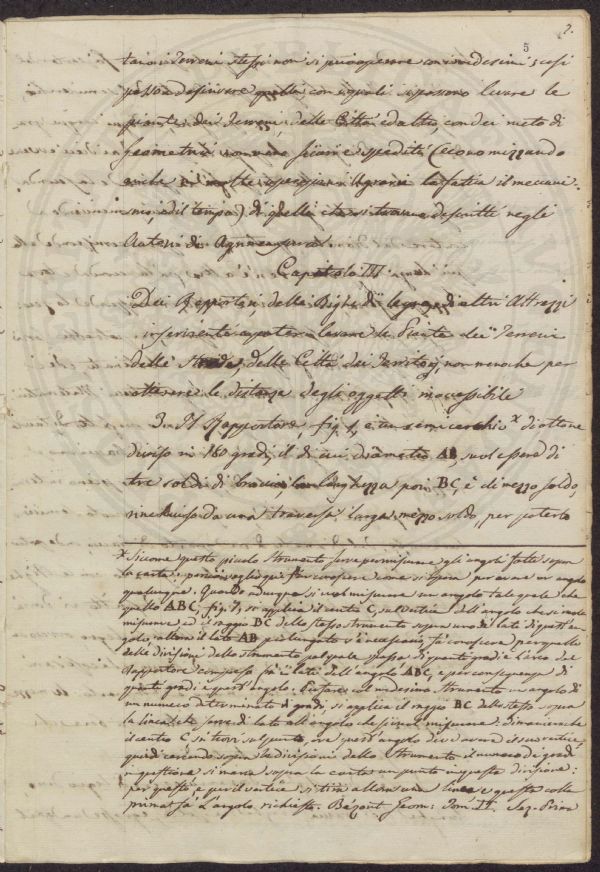 2.
5
tari i Terreni stessi non si può operare con medesimi, così
possa descrivere quelli con i quali si possono levare le
piante dei Terreni, delle Città ed altro, con dei metodi
Geometrici sicuri e spediti (economizzando
anche la fatica il meccani-
smo, ed il tempo) di quelli che si trovano descritti negli
Autori di Agrimensura
Capitolo III
Dei Rapportatori, delle Righe e di altri Attrezzi
inservienti a poter levare le Piante dei Terreni
delle Strade, delle Città dei Territorj, non meno che per
ottenere le distanze degli oggetti inaccessibili
3. Il Rapportatore, fig. 1, è un semicerchio x di ottone
diviso in 180 gradi, il di cui diametro AB, suol essere di
tre soldi di braccio, la larghezza poi BC, è di mezzo soldo,
rinchiuso da una traversa larga mezzo soldo, per poterlo
x Siccome questo piccolo strumento serve per misurare gli angoli fatti sopra
la carta; perciò voglio qui far conoscere come si opera per avere un angolo
qualunque. Quando adunque si vuol misurare un angolo tale quale che
quello ABC, fig. 7, si applica il centro C, sul vertice dell'angolo che si vuole
misurare, ed il raggio BC dello stesso strumento sopra uno di lati di questo an-
golo, allora il lato AB prolungato s'è necessario, fà conoscere per quella
delle divisioni dello strumento sul quale passa di quanti gradi è l'arco del
Rapportatore compreso fra i lati dell'angolo ABC, e per conseguenza di
quanti gradi è quest'angolo. Per fare col medesimo strumento un angolo di
un numero determinato di gradi, si applica il raggio BC dello stesso sopra
la linea che serve di lato all'angolo che si vuol misurare, di maniera che
il centro C si trovi sul punto, ove quest'angolo deve avere il suo vertice,
quindi cercando sopra le divisioni dello Strumento il numero di gradi
in questione si marca sopra la carta un punto in questa divisione:
per questo, e per il vertice si tira allora una linea e questa colla
prima fà l'angolo richiesto. Bezout Geom: Tom. II. Sez. Prima